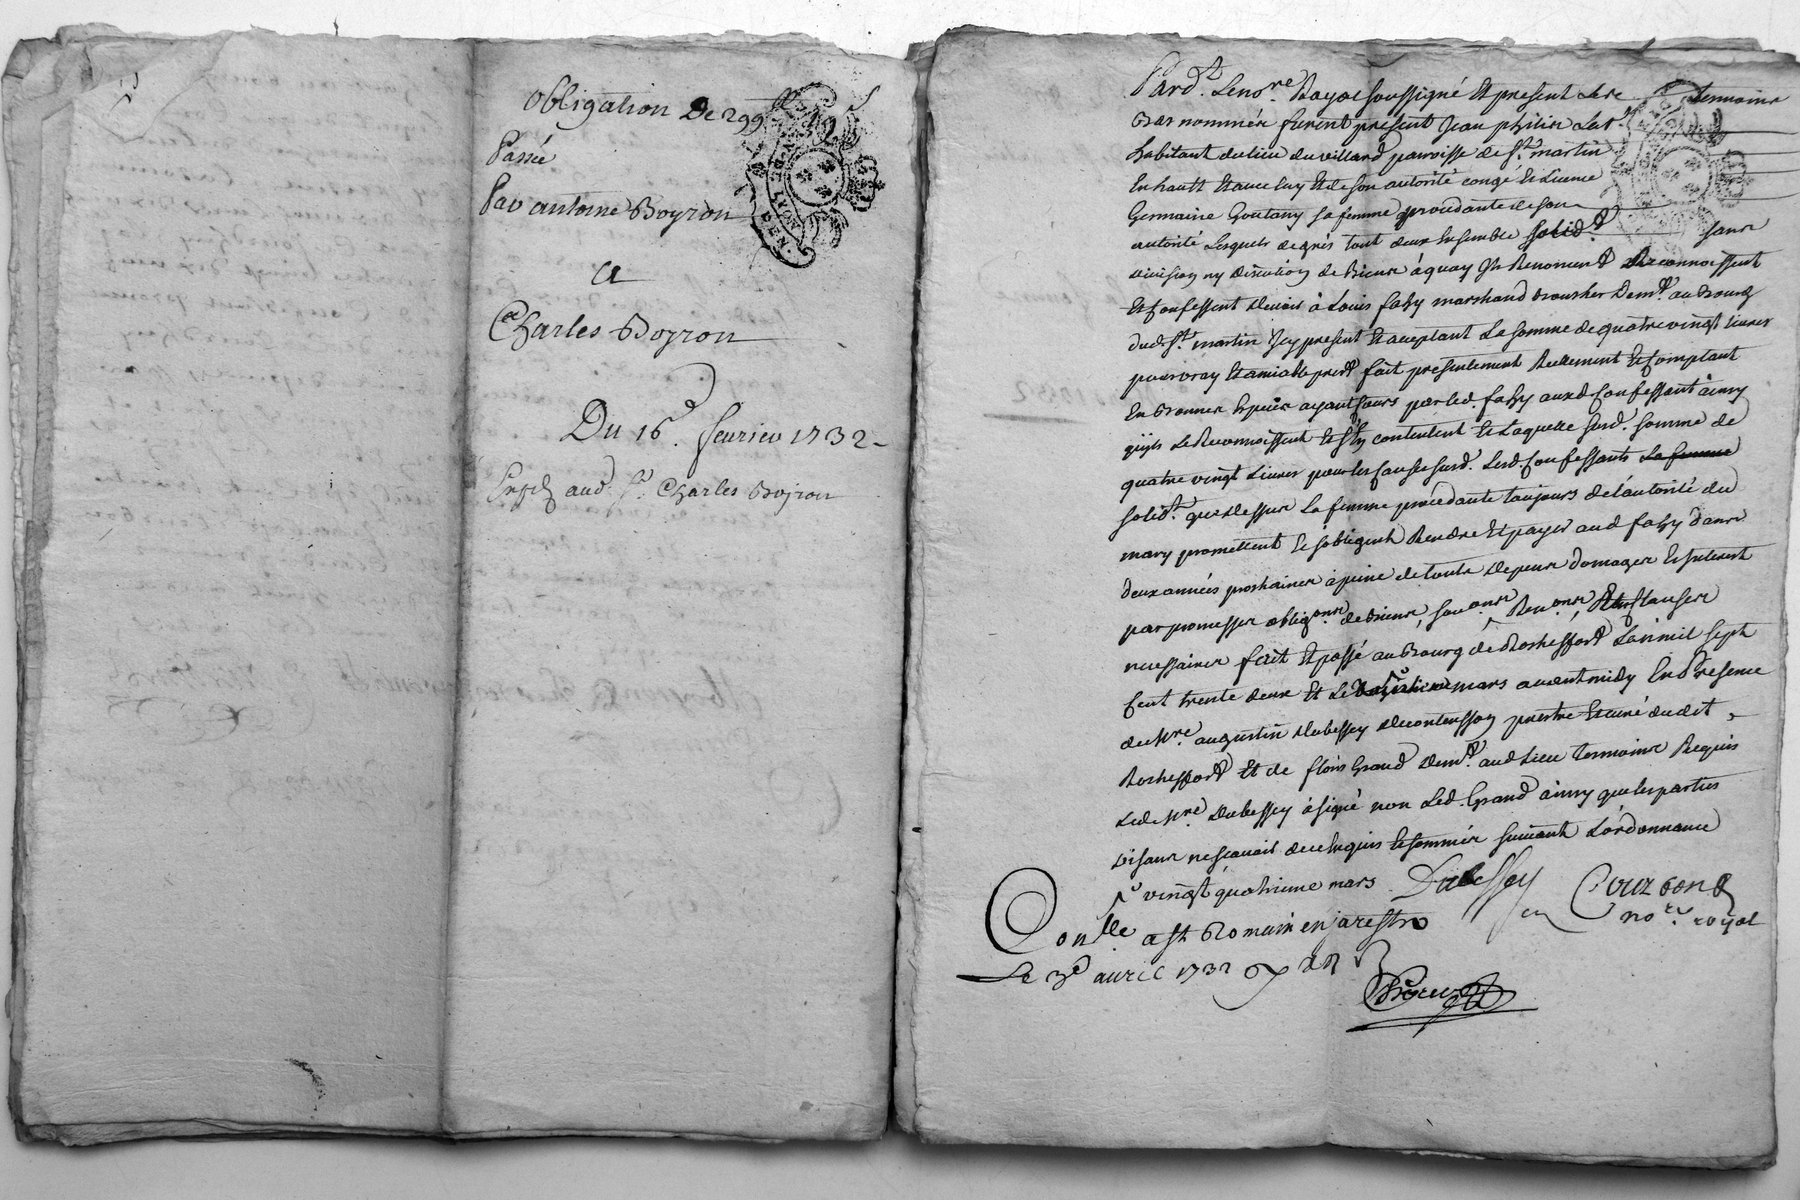 Obligation De 299 ll
Passée
Par antoine Boyron
a
Charles Boyron
Du 16e. feurier 1732
aud. Sr. Charles Boyron
Pard.t Le no.re Royal soussigné Et present Les temoins
Bas nommés furent present Jean
habitant du lieu du villard parroisse de St. martin
En hault Et auec luy Et de son autorité congé Et Licence
Germaine Goutany sa femme procedante de son
autorité Lesquels de grés tout deux Ensemble solid.t sans
division ny discution de Biens à quoy Ils Renoncent Reconnoissent
Et Confessent deuoir à Louis fahy marchand Boucher dem.t au Bourg
dud. St. martin Icy present Et aceptant La somme de quatre vingt Liures
pour vray Et amiable prest fait presentement Reellement Et Comptant
En Bonnes Especes ayant Cours par led. fahy auxd Confessants ainsy
qu'ils Le Reconnoissent Et s'En contentent Et Laquelle susd. somme de
quatre vingt Liures pour les Causes susd. Lesd. Confessants La femme
solid.t que dessus La femme procedante toujours de L'autorité du
mary promettent Et sobligent Rendre Et payer aud fahy dans
deux années prochaines à peine de touts depens domages Et Interest
par promesses oblig.ons de Biens, sou.ons Ren.ons Et Clauses
necessaires fait Et passé au Bourg de Rocheffort Lan mil sept
Cent trente deux Et Le mars auant midy En Presence
de Mre. augustin Dubessey de Contensson prestre Et curé dudit
Rochefford Et de Grand dem.t aud Lieu temoins Requis
Led Mre Dubessey à signé non Led. Grand ainsy que les parties
disant ne scauoir de ce Enquis Et sommés suiuant L'ordonnance
vingt quatrieme mars Dubessey Couzon
no.re royal
Con.lle a St Romain en jarestz
Le 3e auril 1732